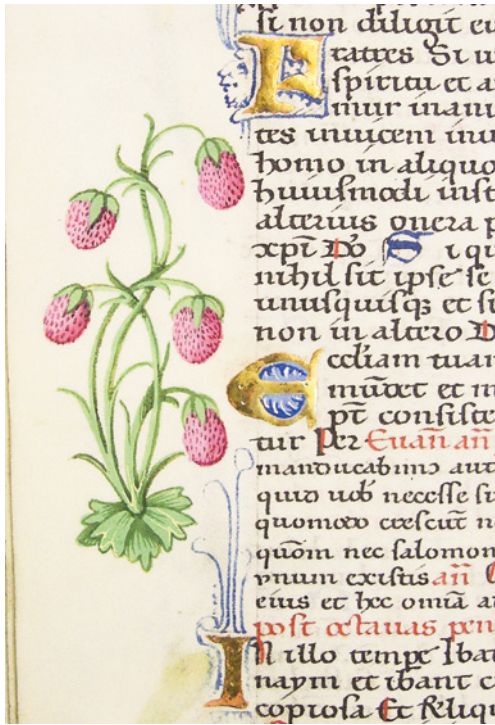 si non diligit eu
Fratres Si u
spiritu et a
mur inani
tes inuicem inu
homo in aliquo
huiusmodi inst
alterius onera p
xpi Do Si qu
nihil sit ipse se
unusquisq; et si
non in altero D
Eccliam tuam
mūdet et m
pt̄ consiste
tur Per Euan̄ an̄
manducabimꝰ aut
quid uob necesse fu
quomodo crescūt n
quōm nec salomon
vnum ex istis an̄
eius et hec omīa a
post octauas pen
In illo tempe Ibat
naym et ibant c
copiosa Et reliqu